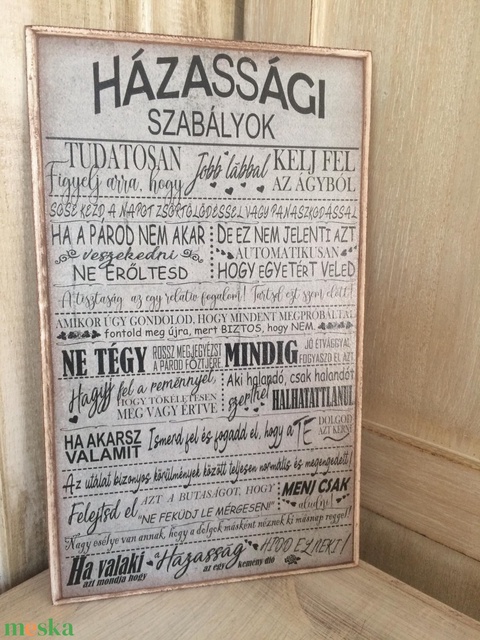 HÁZASSÁGI
SZABÁLYOK
TUDATOSAN
Figyelj arra, hogy Jobb lábbal KELJ FEL
AZ ÁGYBÓL
SOSE KEZD A NAPOT ZSÖRTÖLŐDÉSSEL VAGY PANASZKODÁSSAL
HA A PÁROD NEM AKAR
veszekedni
NE ERŐLTESD
DE EZ NEM JELENTI AZT
AUTOMATIKUSAN
HOGY EGYETÉRT VELED
A tisztaság az egy relatív fogalom! Tartsd ezt szem előtt!
AMIKOR ÚGY GONDOLOD, HOGY MINDENT MEGPRÓBÁLTÁL
fontold meg újra, mert BIZTOS, hogy NEM.
NE TÉGY ROSSZ MEGJEGYZÉST
A PÁROD FŐZTJÉRE
MINDIG JÓ ÉTVÁGGYAL
FOGYASZD EL AZT
Hagyj fel a reménnyel,
HOGY TÖKÉLETESEN
MEG VAGY ÉRTVE
Aki halandó, csak halandót
szerethet HALHATATLANUL
HA AKARSZ
VALAMIT Ismerd fel és fogadd el, hogy a TE DOLGOD
AZT KÉRNI
Az utálat bizonyos körülmények között teljesen normális és megengedett!
Felejtsd el AZT A BUTASÁGOT, HOGY
"NE FEKÜDJ LE MÉRGESEN!"
MENJ CSAK
aludni!
Nagy esélye van annak, hogy a dolgok másként néznek ki másnap reggel!
Ha valaki
azt mondja hogy
a Házasság
az egy kemény dió
HIDD EL NEKI!
meska